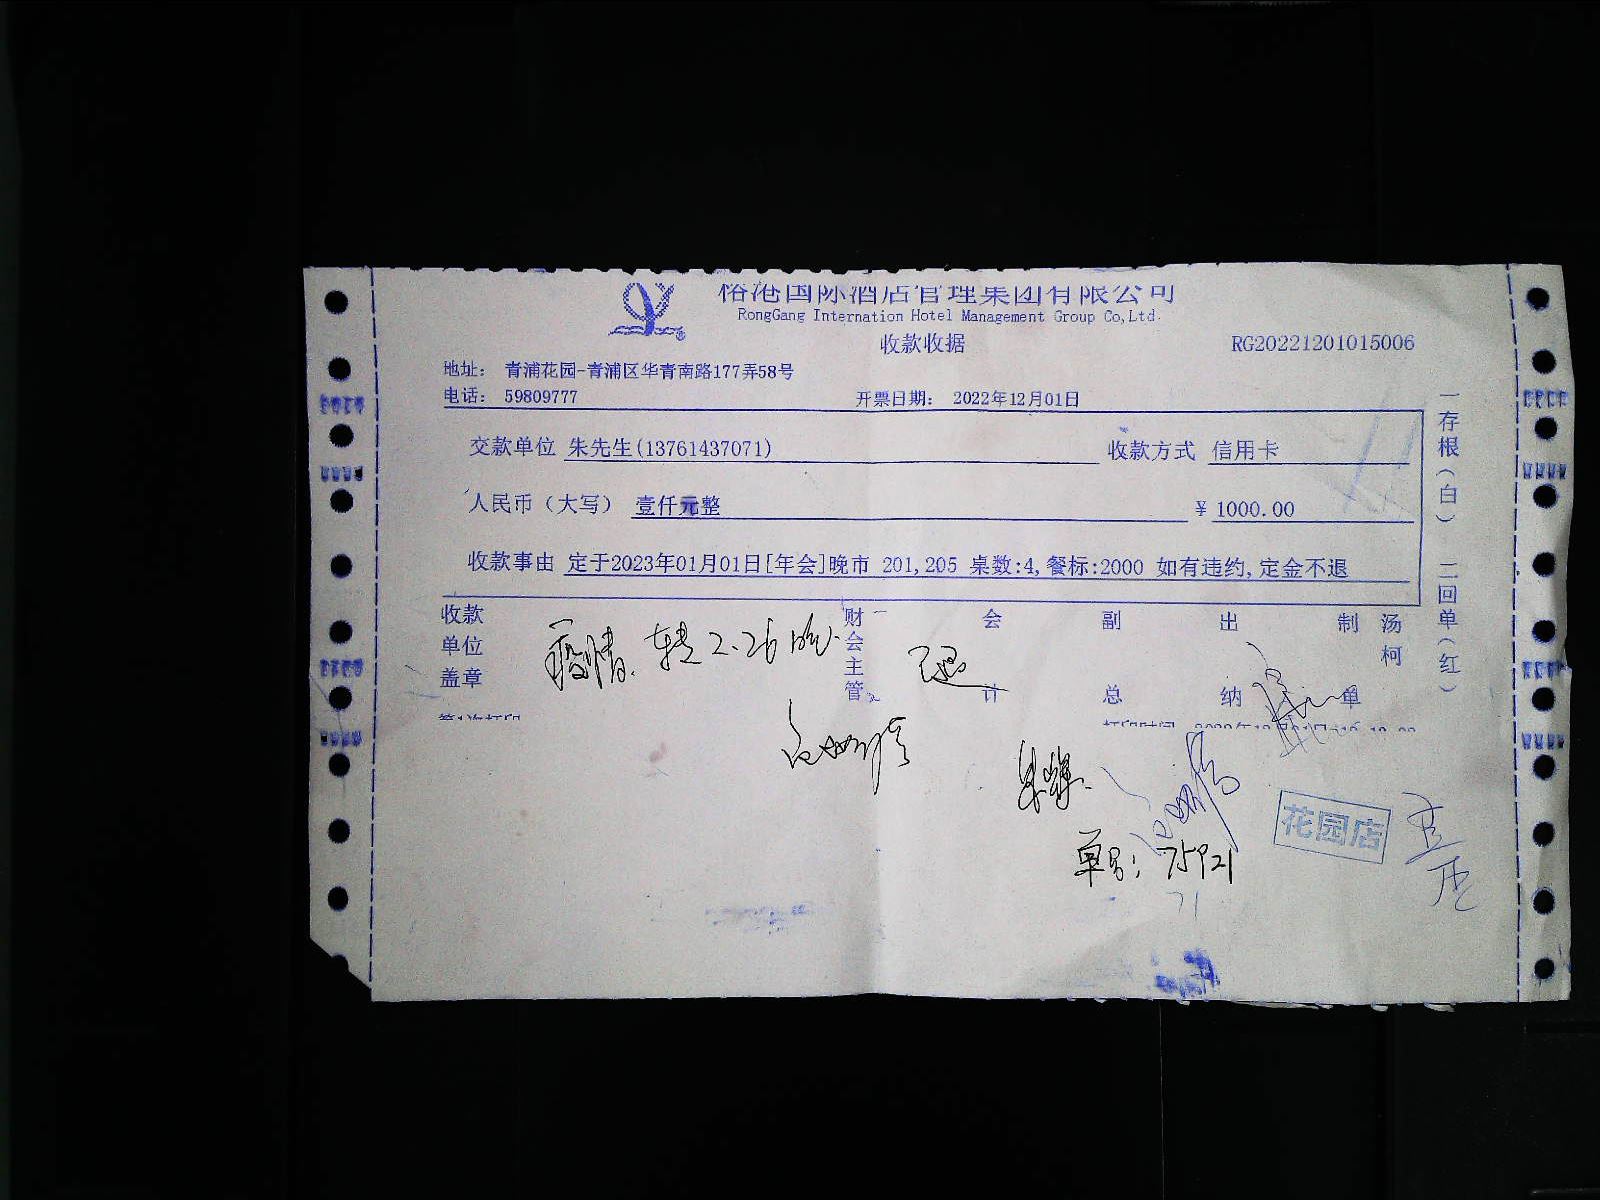 榕港国际酒店管理集团有限公司
RongGang Internation Hotel Management Group Co,Ltd.
收款收据 RG20221201015006
地址: 青浦花园-青浦区华青南路177弄58号
电话: 59809777 开票日期: 2022年12月01日
交款单位 朱先生(13761437071) 收款方式 信用卡
人民币（大写） 壹仟元整 ¥ 1000.00
收款事由 定于2023年01月01日[年会]晚市 201,205 桌数:4,餐标:2000 如有违约,定金不退
收款单位盖章 财会主管 会计 副总 出纳 制单 汤柯
疫情.转2.26晚.
已退
朱辉.
单号: 75921
71
花园店
一存根(白) 二回单(红)